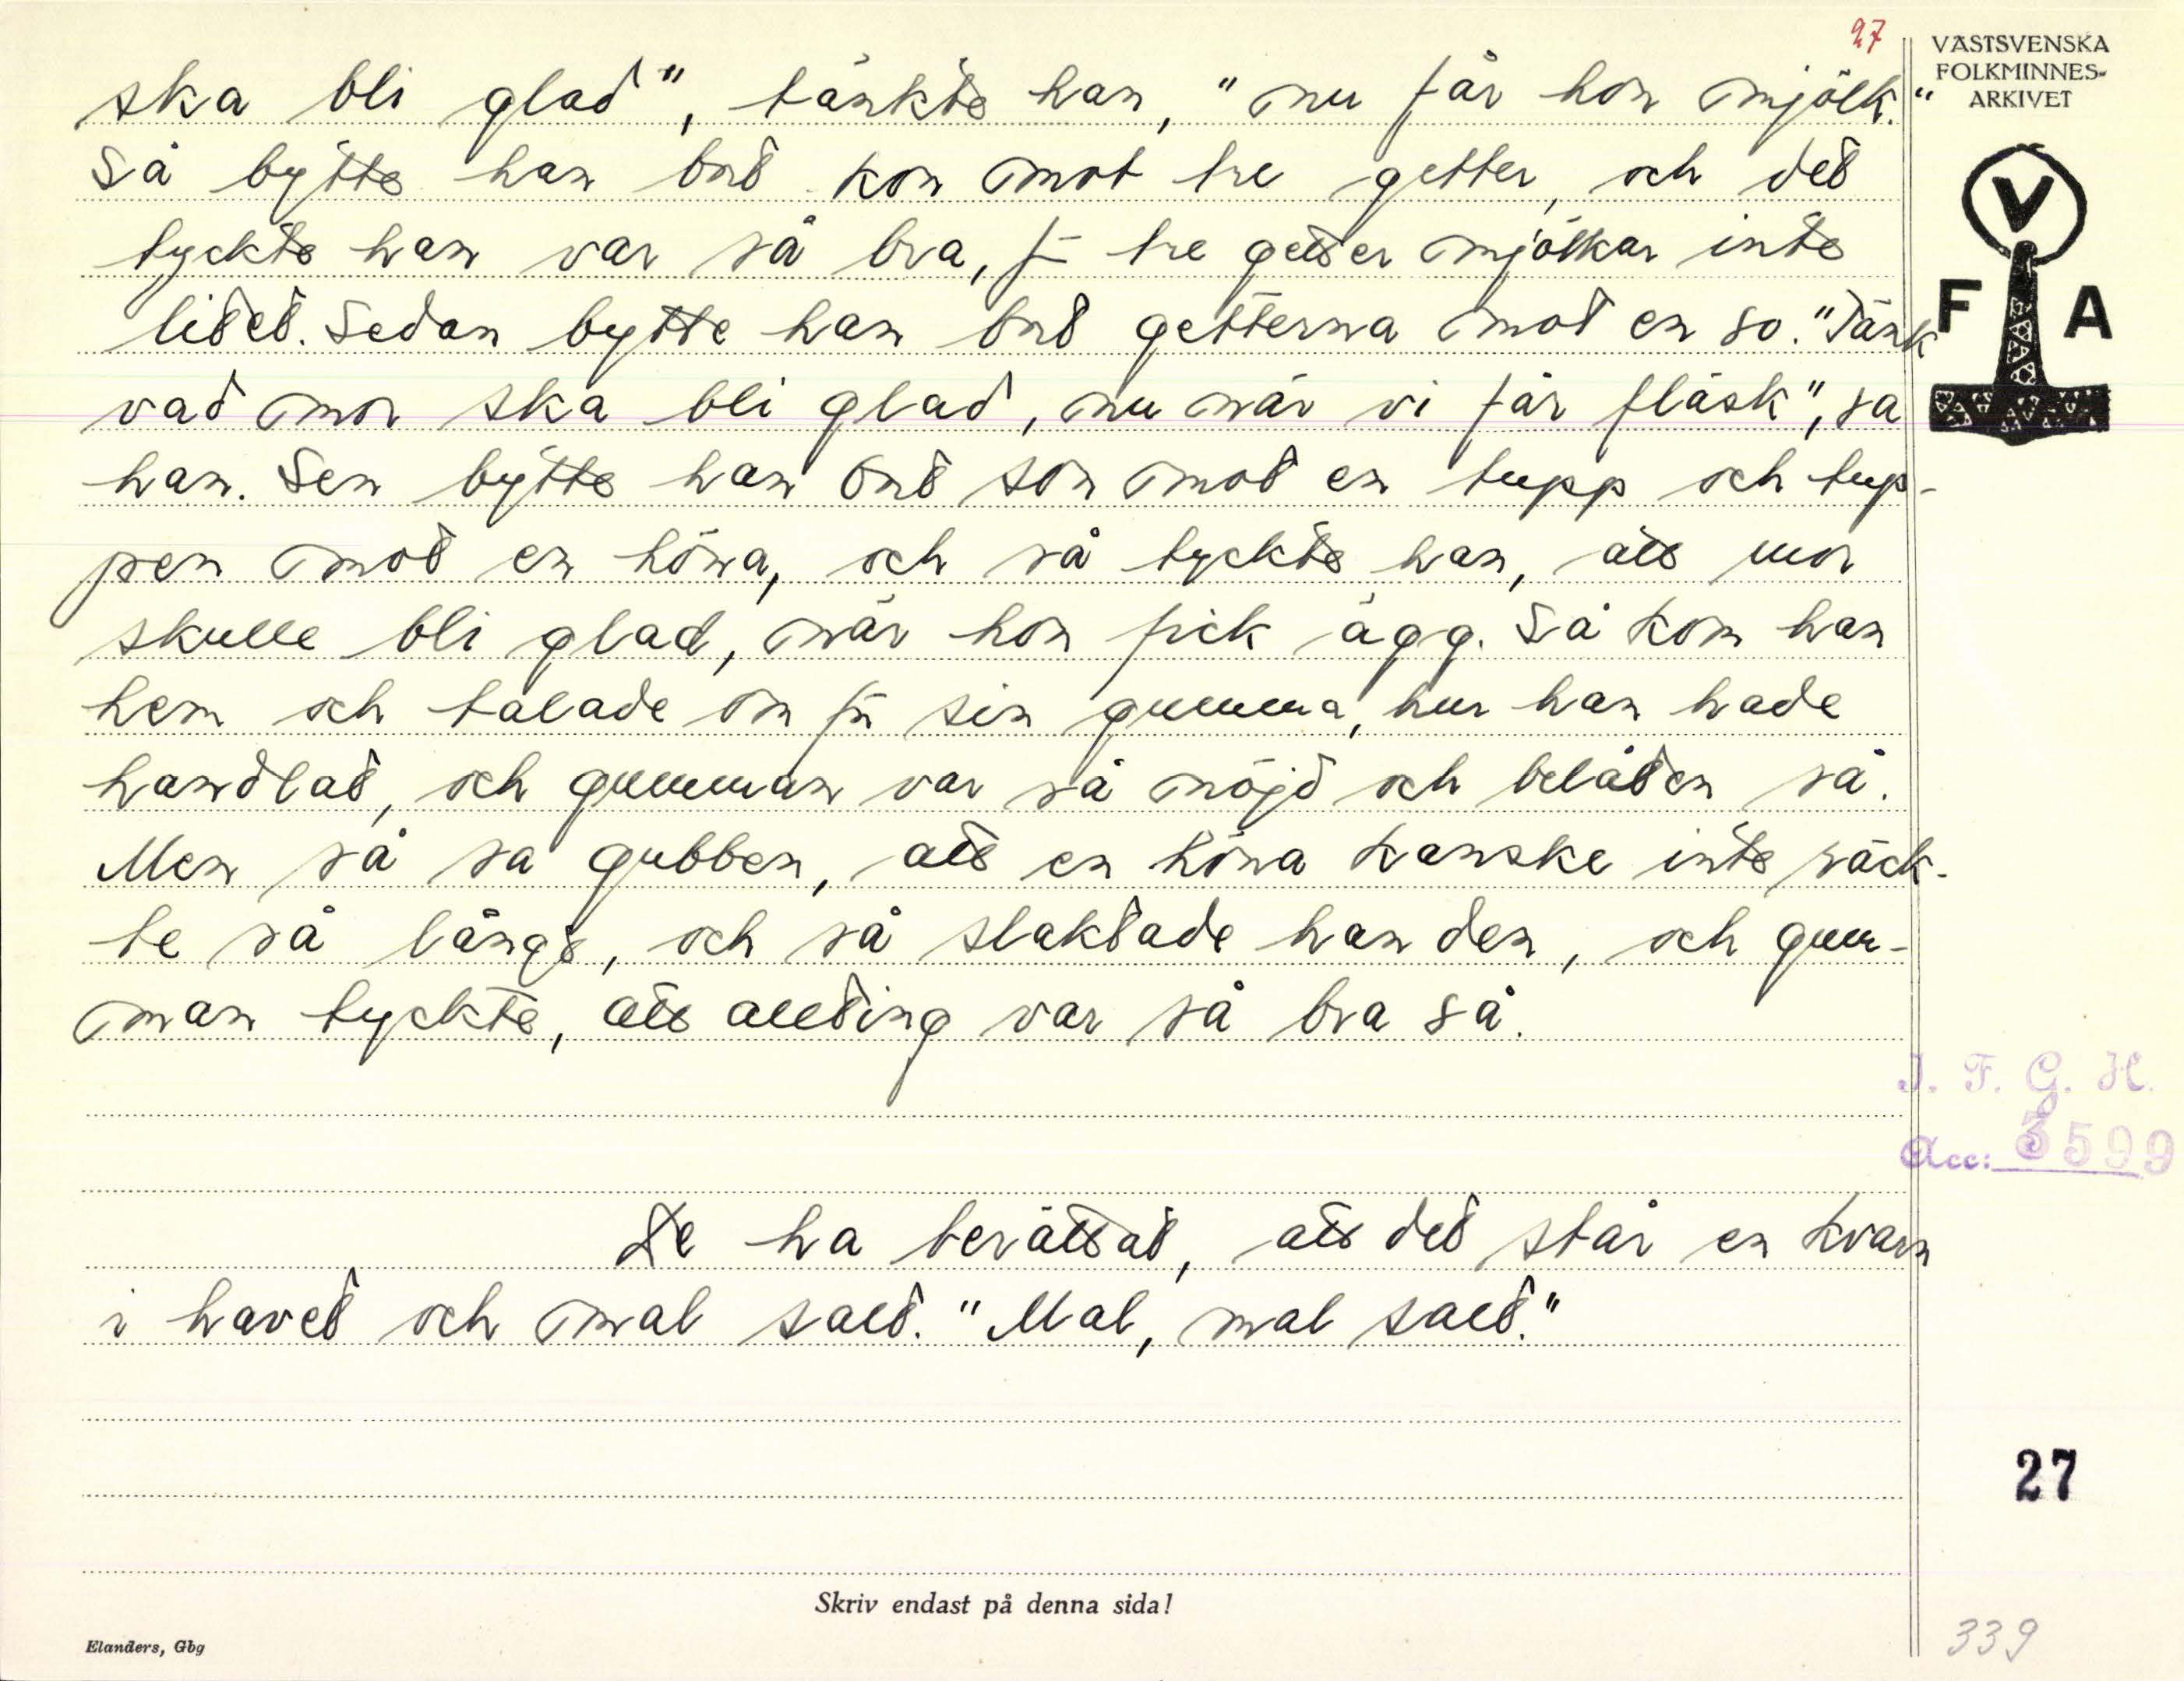 27
VÄSTSVENSKA
FOLKMINNES-
ARKIVET
ska bli glad", tänkte han, "nu får hon mjölk."
Så bytte han bort kon mot tre getter, och det
tyckte han var så bra, f- tre getter mjölkar inte
litet. Sedan bytte han bort getterna mot en so. "Tänk
vad mor ska bli glad, nu när vi får fläsk", sa
han. Sen bytte han bort son mot en tupp och tup-
pen mot en höna, och så tyckte han, att mor
skulle bli glad, när hon fick ägg. Så kom han
hem och talade om för sin gumma, hur han hade
handlat, och gumman var så nöjd och belåten så.
Men så sa gubben, att en höna kanske inte räck-
te så långt, och så slaktade han den, och gum-
man tyckte, att allting var så bra så.
De ha berättat, att det står en kvarn
i havet och mal salt. "Mal, mal salt."
V
F A
I. F. G. H.
Acc: 3599
27
Skriv endast på denna sida!
Elanders, Gbg
339